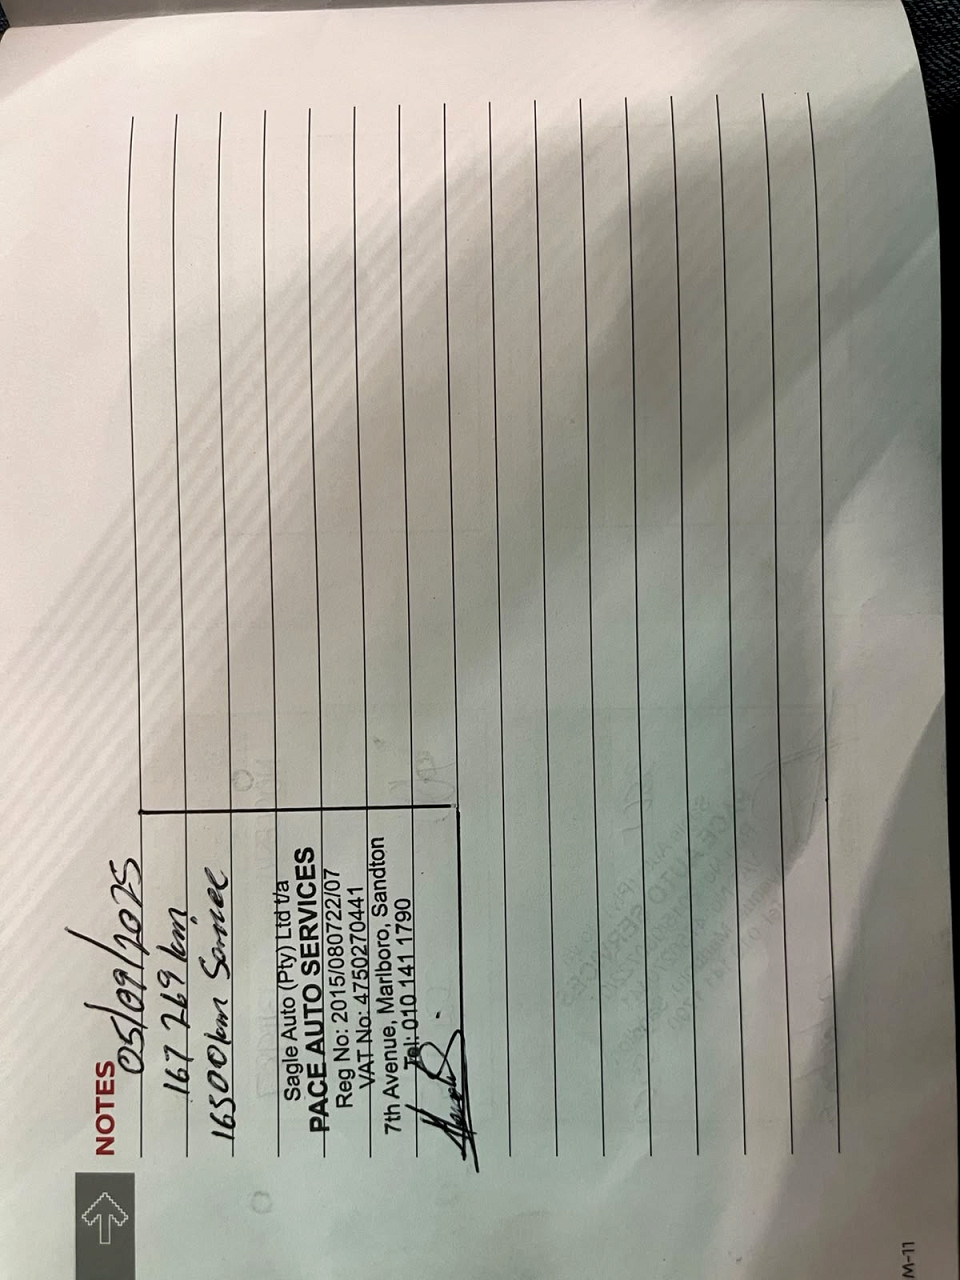 NOTES
05/09/2025
167 269 km
16500km Service
Sagle Auto (Pty) Ltd t/a
PACE AUTO SERVICES
Reg No: 2015/080722/07
VAT No: 4750270441
7th Avenue, Marlboro, Sandton
Tel: 010 141 1790
M-11